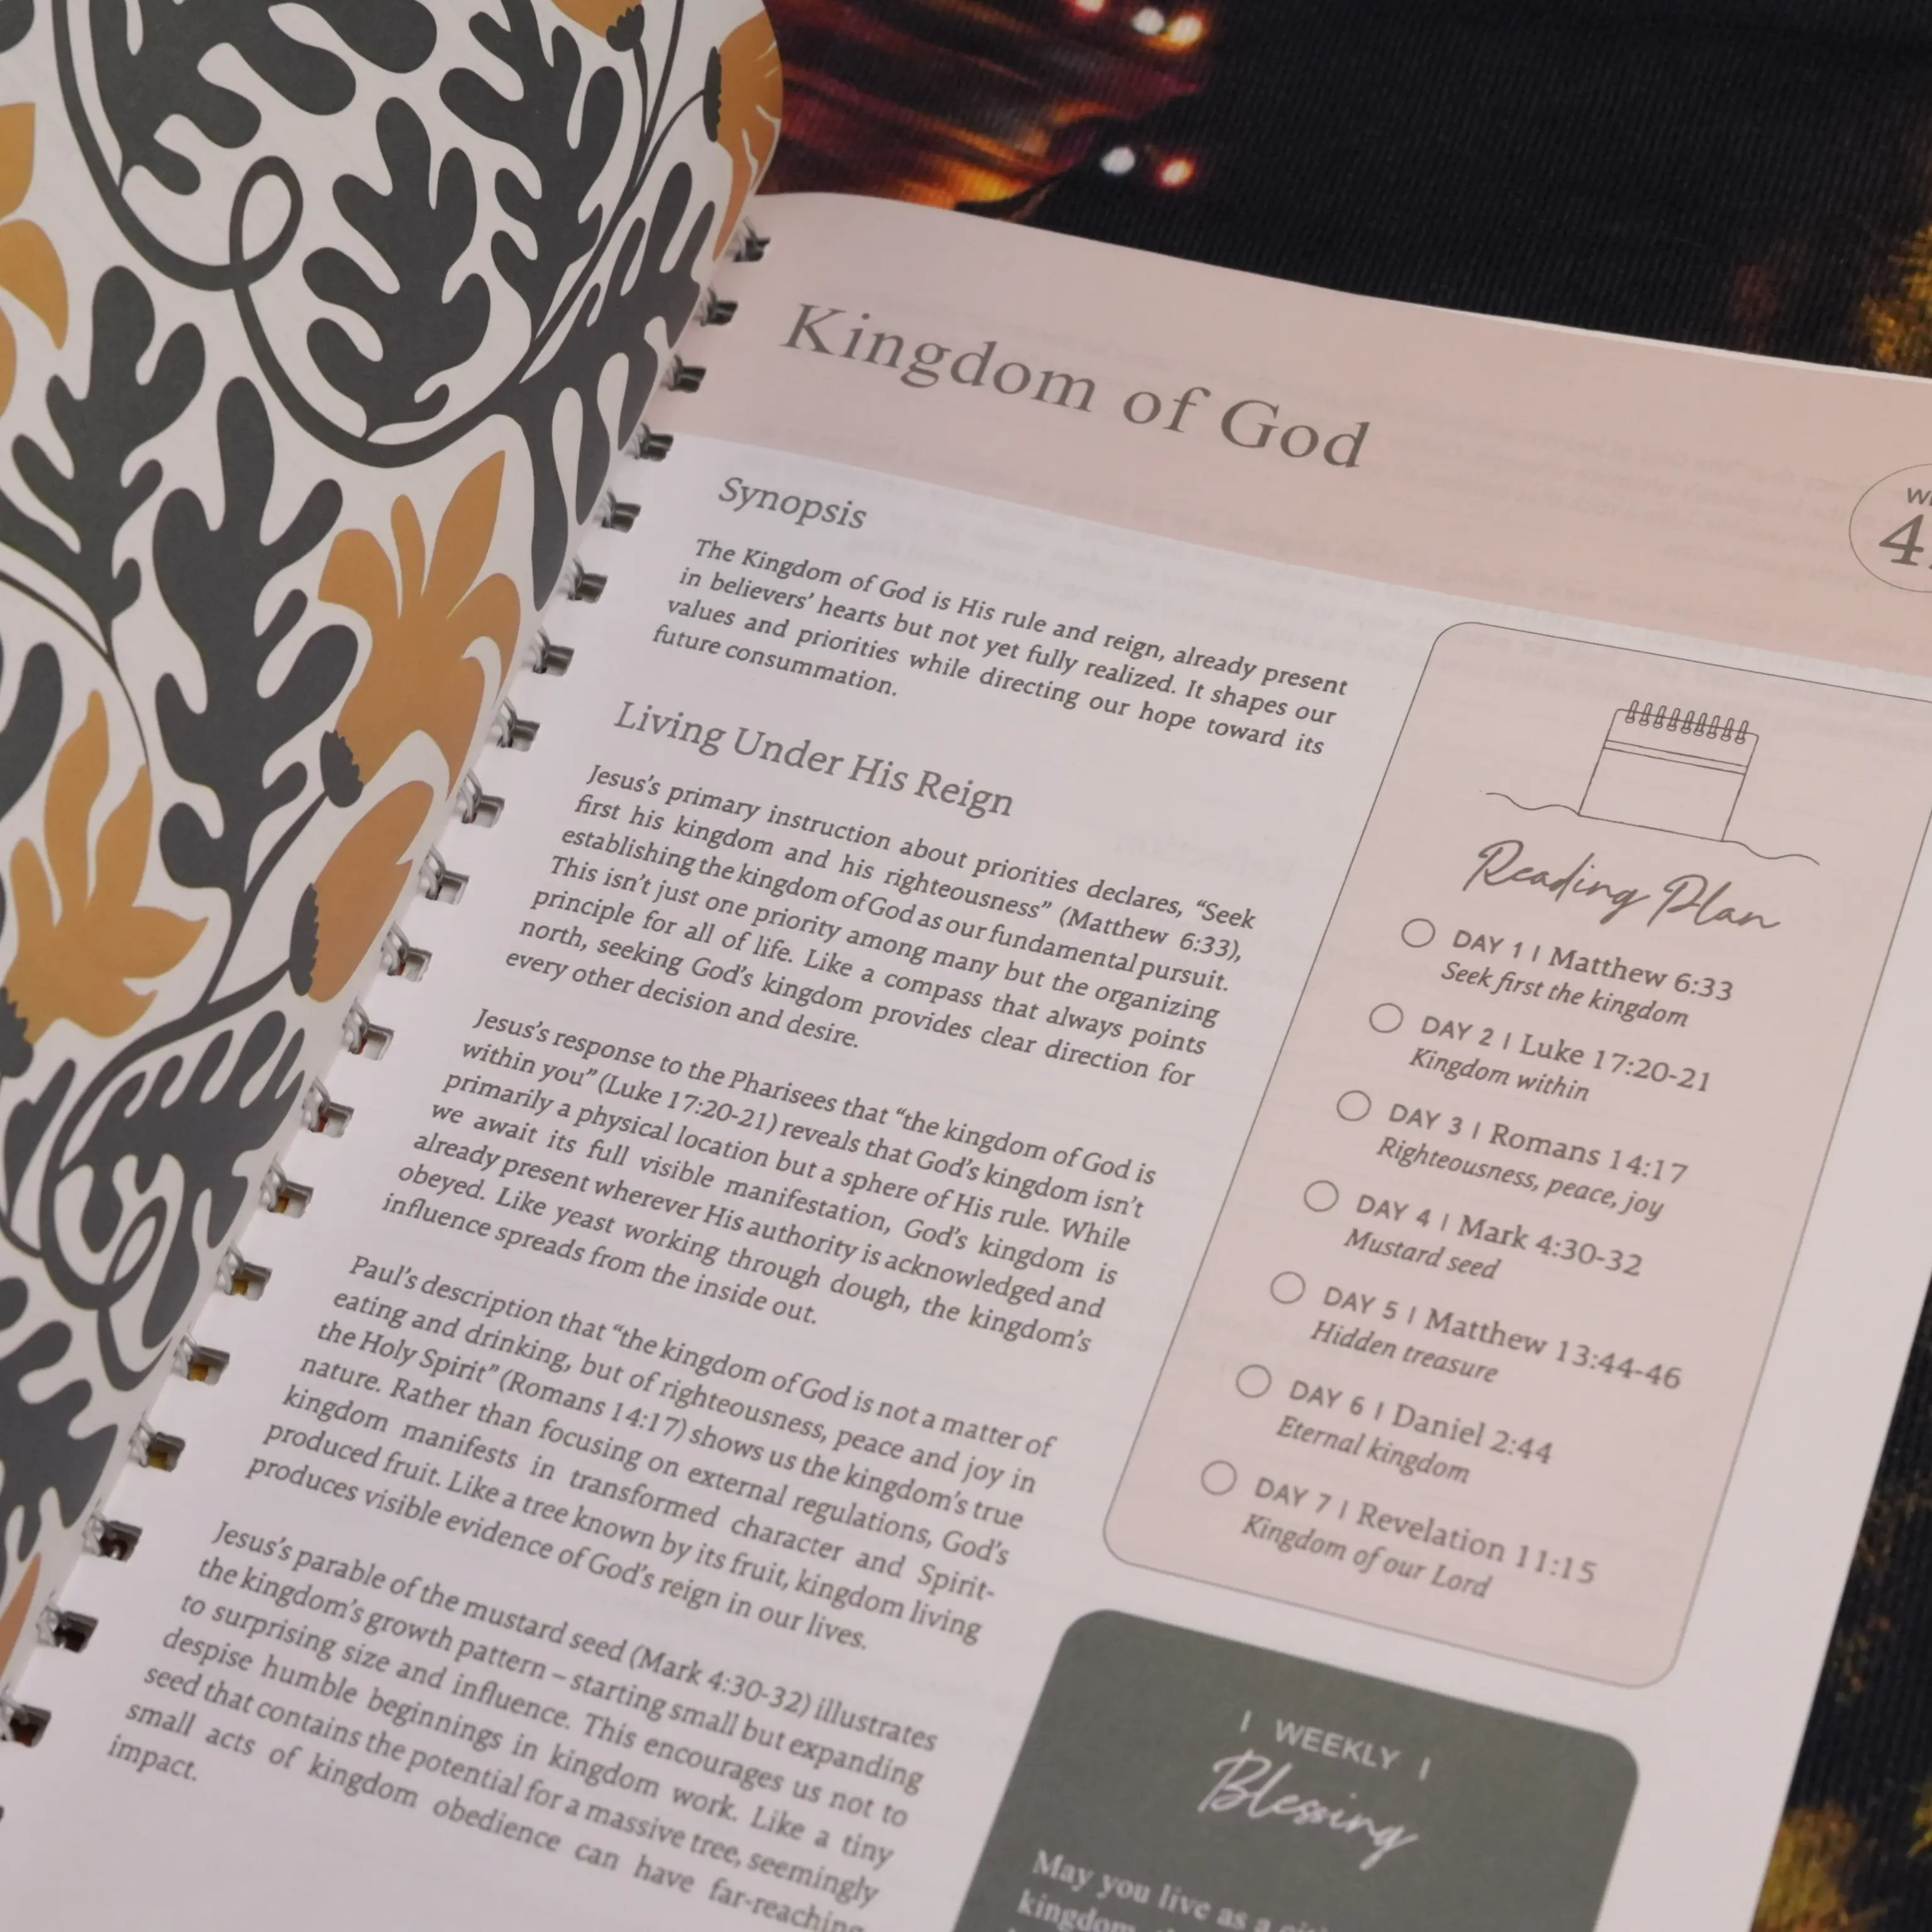 Kingdom of God
Synopsis
The Kingdom of God is His rule and reign, already present
in believers' hearts but not yet fully realized. It shapes our
values and priorities while directing our hope toward its
future consummation.
Living Under His Reign
Jesus's primary instruction about priorities declares, “Seek
first his kingdom and his righteousness” (Matthew 6:33),
establishing the kingdom of God as our fundamental pursuit.
This isn't just one priority among many but the organizing
principle for all of life. Like a compass that always points
north, seeking God's kingdom provides clear direction for
every other decision and desire.
Jesus's response to the Pharisees that “the kingdom of God is
within you” (Luke 17:20-21) reveals that God's kingdom isn't
primarily a physical location but a sphere of His rule. While
we await its full visible manifestation, God's kingdom is
already present wherever His authority is acknowledged and
obeyed. Like yeast working through dough, the kingdom's
influence spreads from the inside out.
Paul's description that “the kingdom of God is not a matter of
eating and drinking, but of righteousness, peace and joy in
the Holy Spirit” (Romans 14:17) shows us the kingdom's true
nature. Rather than focusing on external regulations, God's
kingdom manifests in transformed character and Spirit-
produced fruit. Like a tree known by its fruit, kingdom living
produces visible evidence of God's reign in our lives.
Jesus's parable of the mustard seed (Mark 4:30-32) illustrates
the kingdom's growth pattern – starting small but expanding
to surprising size and influence. This encourages us not to
despise humble beginnings in kingdom work. Like a tiny
seed that contains the potential for a massive tree, seemingly
small acts of kingdom obedience can have far-reaching
impact.
4
Reading Plan
DAY 1 | Matthew 6:33
Seek first the kingdom
DAY 2 | Luke 17:20-21
Kingdom within
DAY 3 | Romans 14:17
Righteousness, peace, joy
DAY 4 | Mark 4:30-32
Mustard seed
DAY 5 | Matthew 13:44-46
Hidden treasure
DAY 6 | Daniel 2:44
Eternal kingdom
DAY 7 | Revelation 11:15
Kingdom of our Lord
| WEEKLY |
Blessing
May you live as a
kingdom